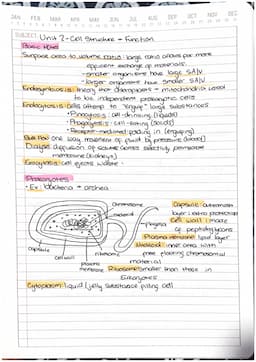 JAN FEB MAR APR MAY JUN JUL AUG SEP OCT NOV DEC
SUBJECT: Unit 2- Cell Structure + Function
Basic
Surface area to volume ratio: large ratio allows for more
efficient exchange of materials.
- smaller organisms have large SA/V
- larger organisms have smaller SA/V
Endosymbiosis: theory that chloroplasts + mitochondria used
to be independent prokaryotic cells
Endocytosis: cells attempt to "engulf" large substances
• Pinocytosis: cell-drinking (liquids)
• Phagocytosis: cell-eating (solids)
• Receptor-mediated: pulling in (engulfing)
Bulk flow: one way movement of fluid by pressure
Dialysis: diffusion of solutes across selectively permeable
membrane (kidneys)
Exocytosis: cell ejects waste
Prokaryotes
• Ex: bacteria + archea
Chromosome
nucleoid
flagella
ribosome
Plasma membrane
Cell wall
Capsule
Capsule: outermost
layer: extra protection
Cell wall: made
of peptidoglycans
Plasma membrane: lipid layer
Nucleoid: area with
free floating chromosomal
material
Ribosome: smaller than those in
Eukaryotes
Cytoplasm: liquid/jelly substance filling cell